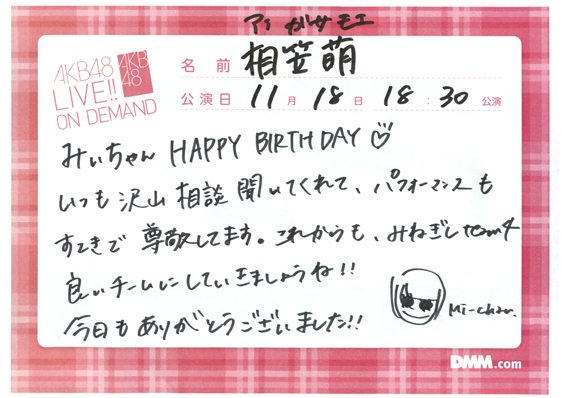 アイ がサ モエ
AKB48
LIVE!!
ON DEMAND
AKB
48
名 前 相笠萌
公演日 11月 18日 18:30 公演
みぃちゃん HAPPY BIRTHDAY♡
いつも沢山相談聞いてくれて、パフォーマンスも
すてきで尊敬してます。これからも、みねぎしteam4
良いチームにしていきましょうね!!
今日もありがとうございました!!
Mi-chan.
DMM.com